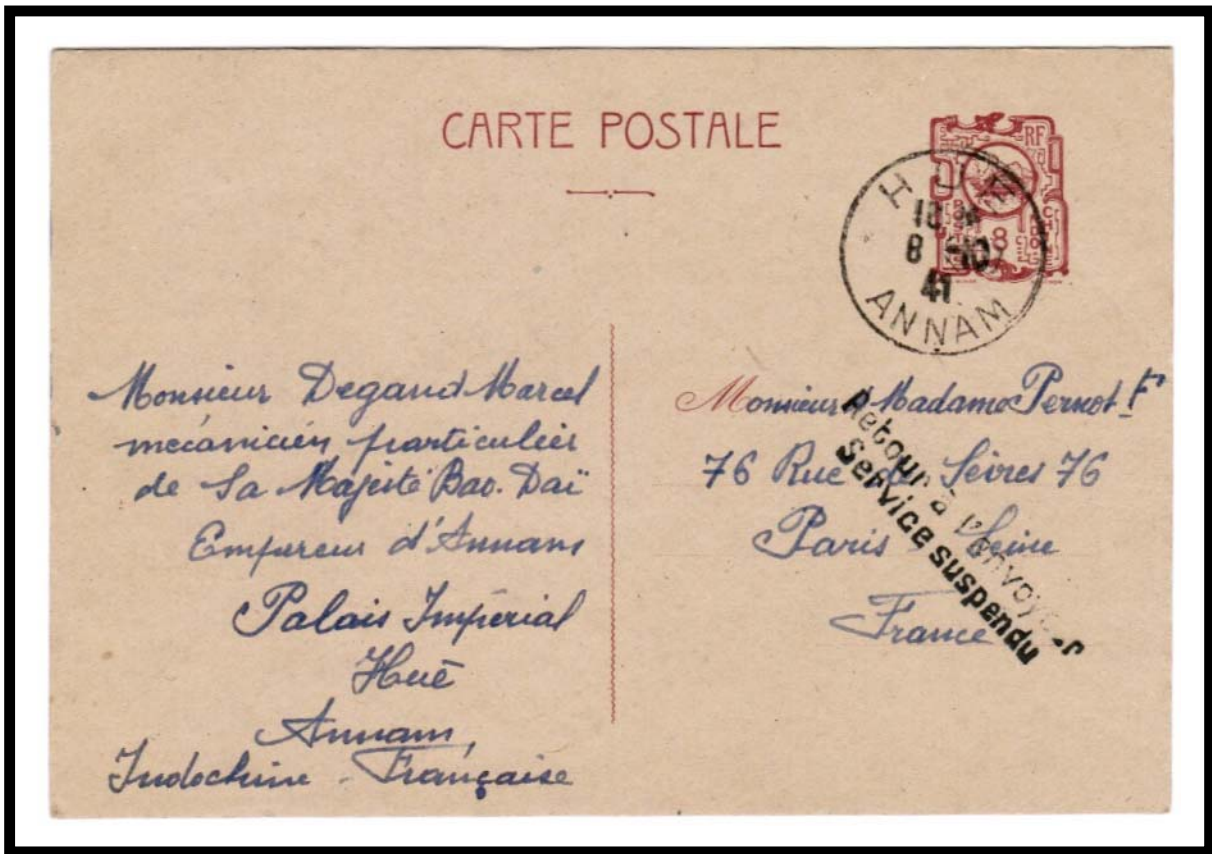 CARTE POSTALE
RF
8
HUE
8 -10
41
ANNAM
Monsieur Degand Marcel
mécanicien particulier
de Sa Majesté Bao. Daï
Empereur d'Annam
Palais Impérial
Hué
Annam,
Indochine - Française
Monsieur Madame Pernot F
76 Rue de Sèvres 76
Paris Seine
France
Retour à l'envoyeur
Service suspendu